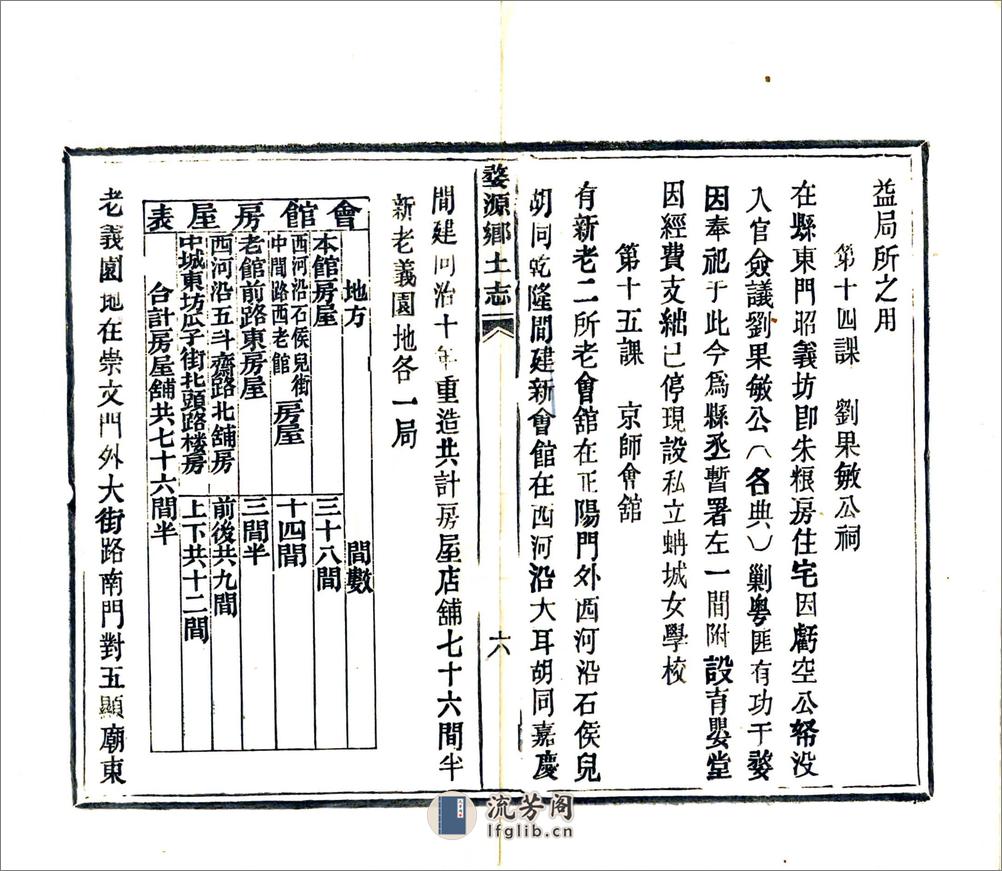 益局所之用
第十四課　劉果敏公祠
在縣東門昭義坊即朱粮房住宅因虧空公帑没
入官僉議劉果敏公（名典）剿粤匪有功于婺
因奉祀于此今爲縣丞暫署左一間附設育嬰堂
因經費支絀已停現設私立蚺城女學校
第十五課　京師會舘
有新老二所老會舘在正陽門外西河沿石侯兒
胡同乾隆間建新會館在西河沿大耳胡同嘉慶
婺源鄉土志
六
間建同治十年重造共計房屋店舖七十六間半
新老義園地各一局
會館房屋表
地方　間數
本館房屋　三十八間
西河沿石侯兒街
中間路西老館
房屋　十四間
老館前路東房屋　三間半
西河沿五斗齋路北舖房　前後共九間
中城東坊瓜子街北頭路楼房　上下共十二間
合計房屋舖共七十六間半
老義園地在崇文門外大街路南門對五顯廟東
流芳阁
lfglib.cn